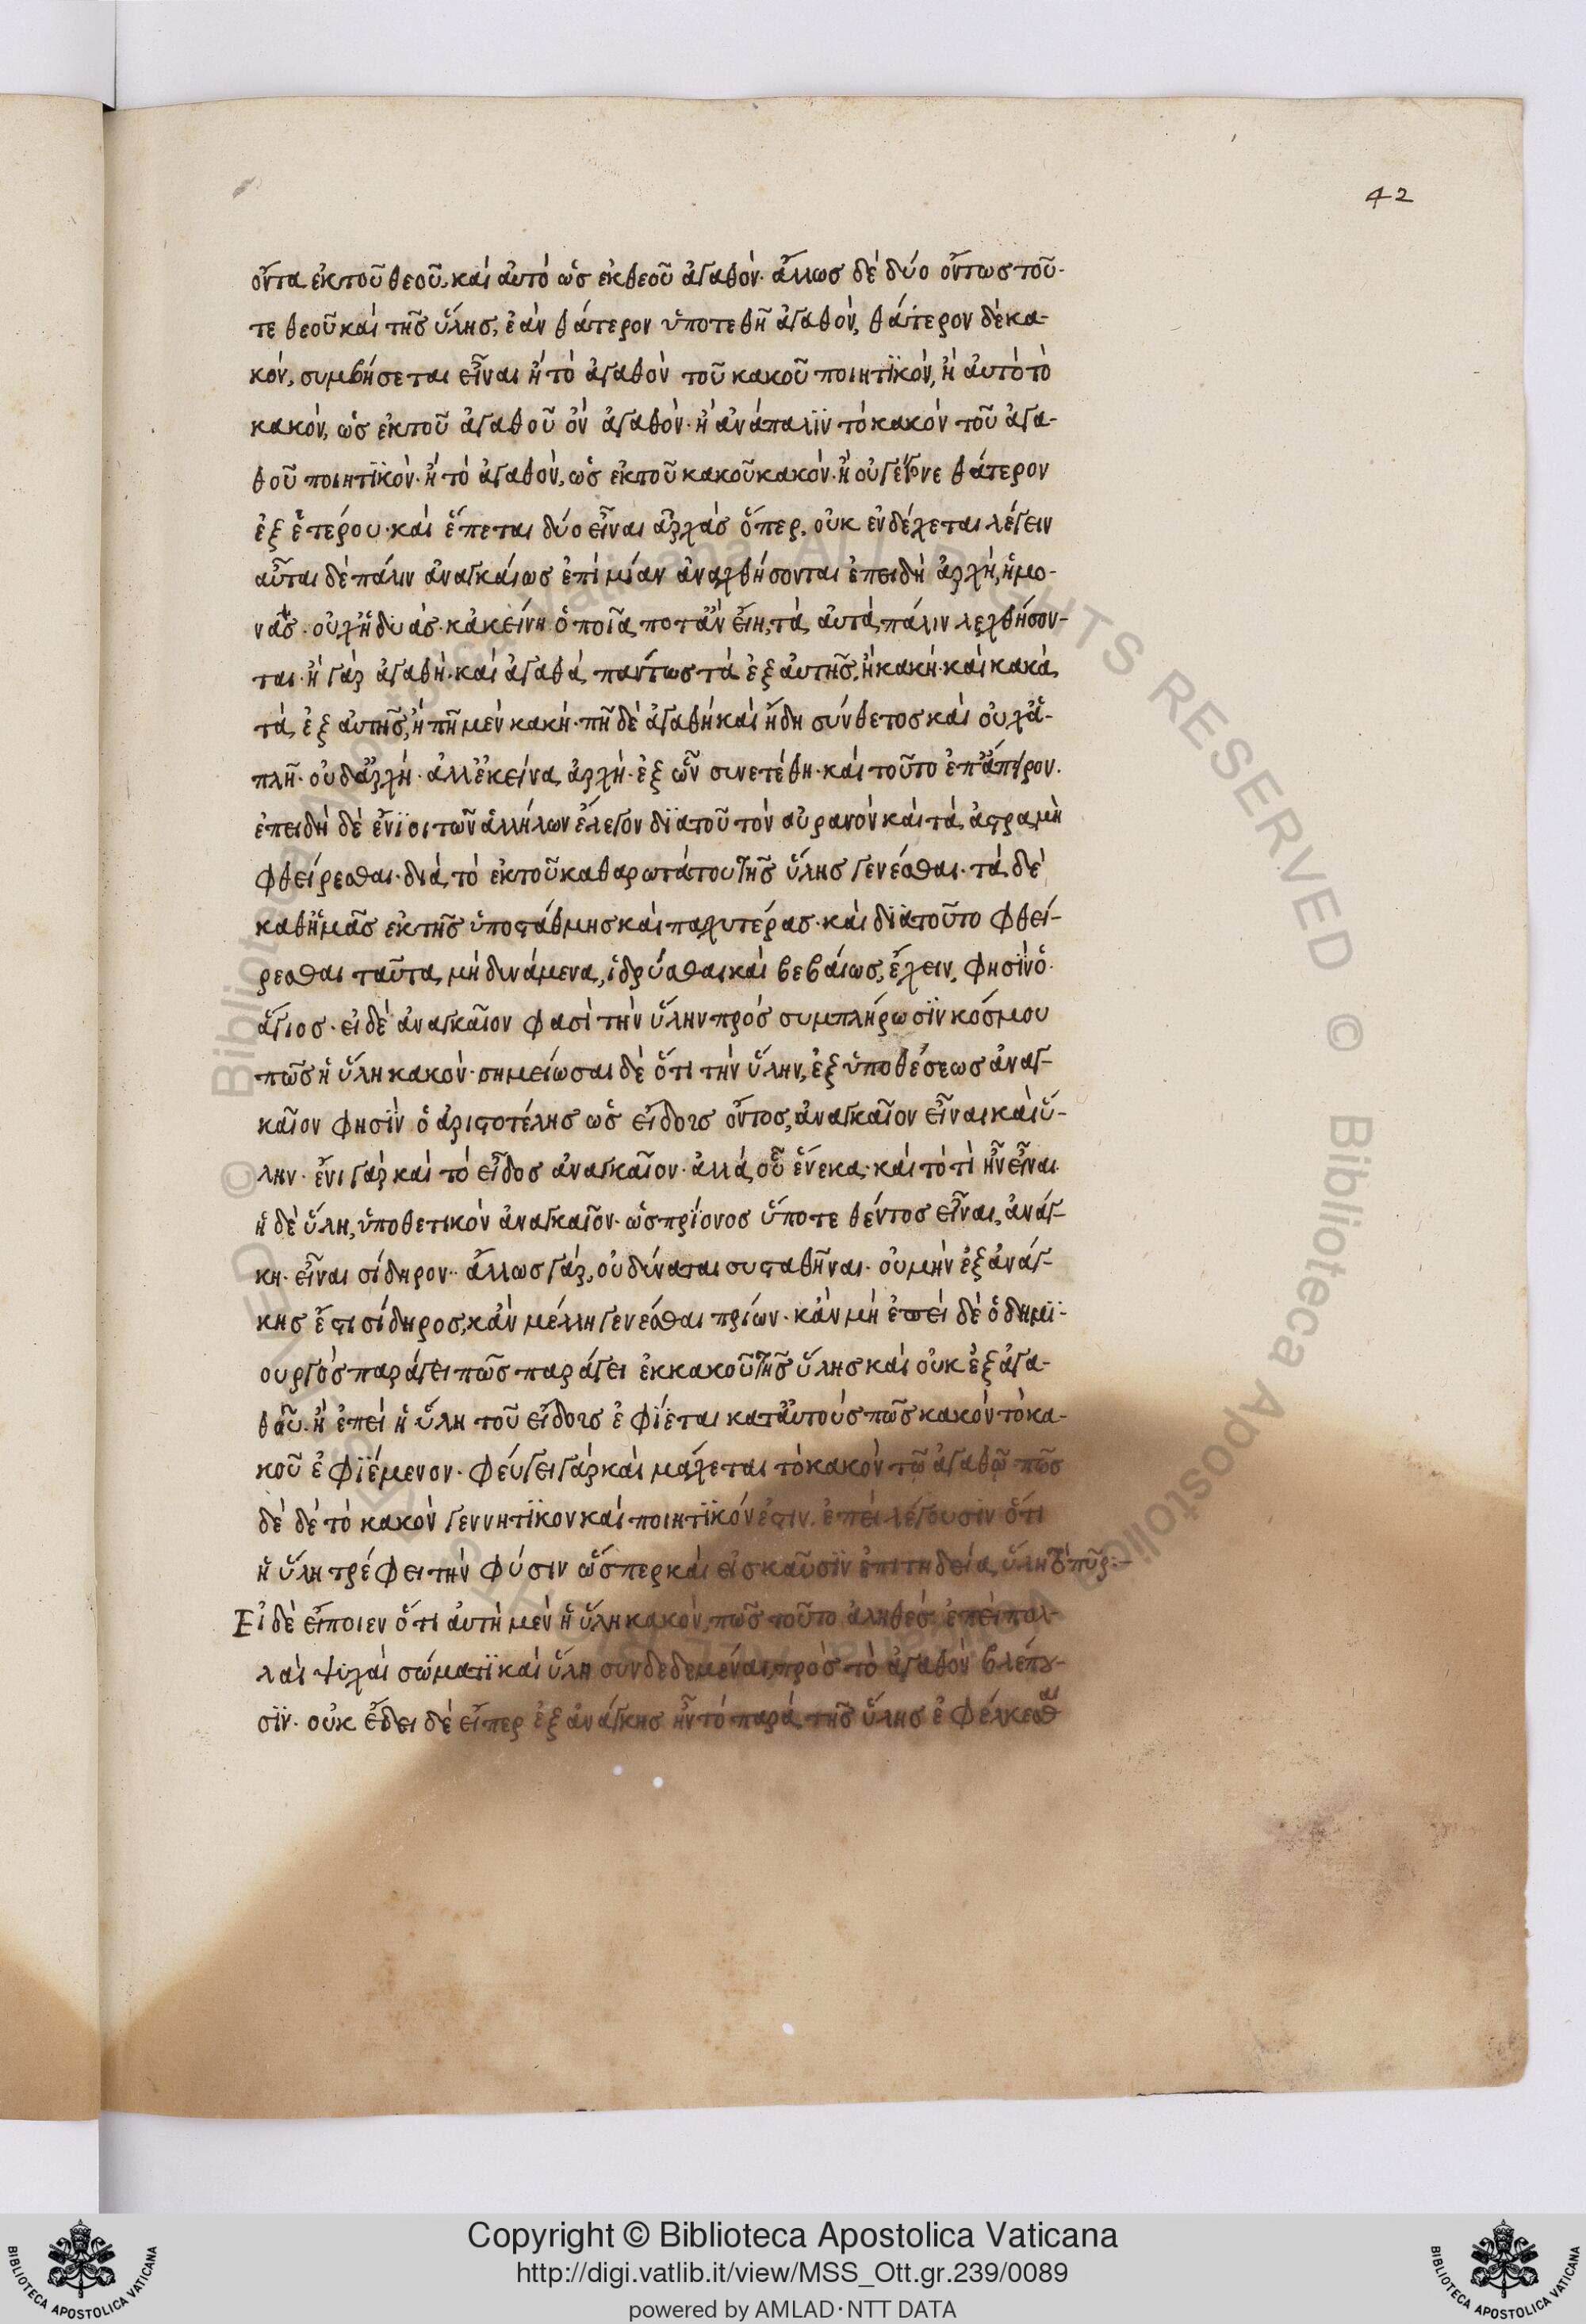 42
ὄντα ἐκ τοῦ θεοῦ, καὶ αὐτὸ ὡς ἐκ θεοῦ ἀγαθόν· ἄλλως δὲ δύο ὄντως τοῦ-
τε θεοῦ καὶ τῆς ὕλης, ἐὰν θάτερον ὑποτεθῆ ἀγαθὸν, θάτερον δὲ κα-
κὸν, συμβήσεται εἶναι ἢ τὸ ἀγαθὸν τοῦ κακοῦ ποιητϊκὸν, ἢ αὐτὸ τὸ
κακὸν, ὡς ἐκ τοῦ ἀγαθοῦ ὂν ἀγαθὸν· ἢ ἀνάπαλϊν τὸ κακὸν τοῦ ἀγα-
θοῦ ποιητϊκὸν· ἢ τὸ ἀγαθὸν, ὡς ἐκ τοῦ κακοῦ κακὸν· ἢ οὐ γέγονε θάτερον
ἐξ ἑτέρου· καὶ ἕπεται δύο εἶναι ἀρχὰς ὅπερ, οὐκ ἐνδέχεται λέγειν
αὗται δὲ πάλιν ἀναγκαίως ἐπὶ μίαν ἀναχθήσονται ἐπειδὴ ἀρχὴ, ἡ μο-
νὰς· οὐχ ἡ δυὰς· κἀκείνη ὁποῖα ποτ᾽ ἂν εἴη, τὰ αὐτὰ πάλιν λεχθήσον-
ται· ἢ γὰρ ἀγαθὴ· καὶ ἀγαθὰ πάντως τὰ ἐξ αὐτῆς, ἢ κακὴ· καὶ κακὰ
τὰ ἐξ αὐτῆς, ἢ πῆ μὲν κακὴ· πῆ δὲ ἀγαθὴ καὶ ἤδη σύνθετος καὶ οὐχ ἁ-
πλῆ· οὐδ᾽ ἀρχὴ· ἀλλ᾽ ἐκείνα ἀρχὴ· ἐξ ὧν συνετέθη· καὶ τοῦτο ἐπ᾽ ἄπειρον.
ἐπειδὴ δὲ ἔνϊοι τῶν ἀλλήλων ἔλεγον δϊατοῦ τὸν οὐρανὸν καὶ τὰ ἄστρα μὴ
φθείρεσθαι· διὰ τὸ ἐκ τοῦ καθαρωτάτου τῆς ὕλης γενέσθαι· τὰ δὲ
καθ᾽ ἡμᾶς ἐκ τῆς ὑποστάθμης καὶ παχυτέρας· καὶ δϊατοῦτο φθεί-
ρεσθαι ταῦτα μὴ δυνάμενα, ἱδρύσθαι καὶ βεβαίως, ἔχειν, φησϊν ὁ
ἅγιος· εἰ δὲ ἀναγκαῖον φασὶ τὴν ὕλην πρὸς συμπλήρωσϊν κόσμου
πῶς ἡ ὕλη κακὸν· σημείωσαι δὲ ὅτι τὴν ὕλην, ἐξ ὑποθέσεως ἀναγ-
καῖον φησϊν ὁ ἀριστοτέλης ὡς εἴδους ὄντος, ἀναγκαῖον εἶναι καὶ ὕ-
λην· ἔνι γὰρ καὶ τὸ εἶδος ἀναγκαῖον· ἀλλὰ οὗ ἕνεκα· καὶ τὸ τὶ ἦν εἶναι
ἡ δὲ ὕλη, ὑποθετικὸν ἀναγκαῖον· ὡς πρίονος ὑποτεθέντος εἶναι, ἀνάγ-
κη· εἶναι σίδηρον· ἄλλως γὰρ, οὐ δύναται συσταθῆναι· οὐ μὴν ἐξ ἀνάγ-
κης ἔστι σίδηρος, κἂν μέλλη γενέσθαι πρίων· κἂν μὴ ἐπεὶ δὲ ὁ δημϊ-
ουργὸς παράγει πῶς παράγει ἐκ κακοῦ τῆς ὕλης καὶ οὐκ ἐξ ἀγα-
θοῦ· ἢ ἐπεὶ ἡ ὕλη τοῦ εἴδους ἐφϊεται κατ᾽ αὐτοὺς πῶς κακὸν τὸ κα-
κοῦ ἐφϊέμενον· φεύγει γὰρ καὶ μάχεται τὸ κακὸν τῷ ἀγαθῷ πῶς
δὲ δὲ τὸ κακὸν γεννητϊκον καὶ ποιητϊκόν ἐστιν. ἐπεὶ λέγουσϊν ὅτι
ἡ ὕλη τρέφει τὴν φύσιν ὥσπερ καὶ εἰς καῦσϊν ἐπιτηδεία ὕλη τὸ πῦρ:—
Εἰ δὲ εἴποιεν ὅτι αὐτὴ μὲν ἡ ὕλη κακὸν, πῶς τοῦτο ἀληθές· ἐπεὶ πολ-
λαὶ ψυχαὶ σώματϊ καὶ ὕλη συνδεδεμέναι, πρὸς τὸ ἀγαθὸν βλέπου-
σϊν· οὐκ ἔδει δὲ εἴπερ ἐξ ἀνάγκης ἦν τὸ παρὰ τῆς ὕλης ἐφέλκεσθαι
Copyright © Biblioteca Apostolica Vaticana
http://digi.vatlib.it/view/MSS_Ott.gr.239/0089
powered by AMLAD·NTT DATA
BIBLIOTECA APOSTOLICA VATICANA
BIBLIOTECA APOSTOLICA VATICANA